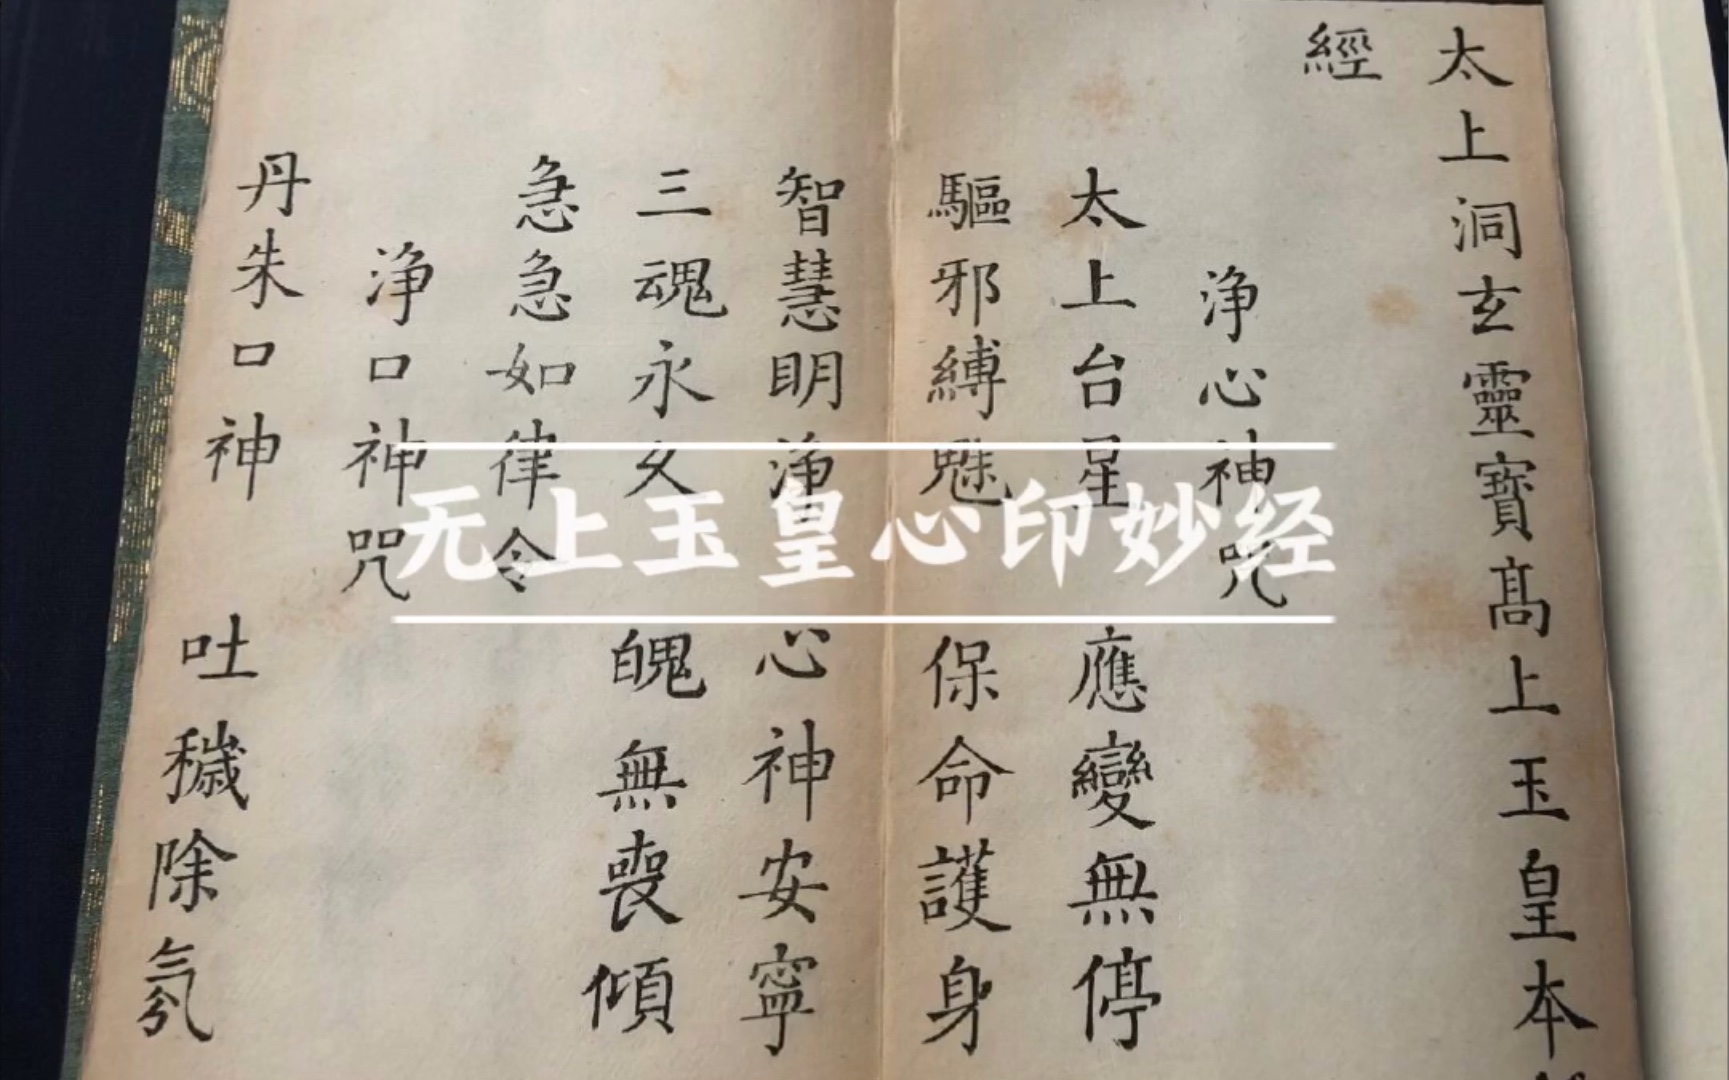 太上洞玄靈寶髙上玉皇本
經
浄心神咒
太上台星 應變無停
驅邪縛魅 保命護身
智慧眀浄 心神安寧
三魂永久 魄無喪傾
急急如律令
浄口神咒
丹朱口神 吐穢除氛
无上玉皇心印妙经